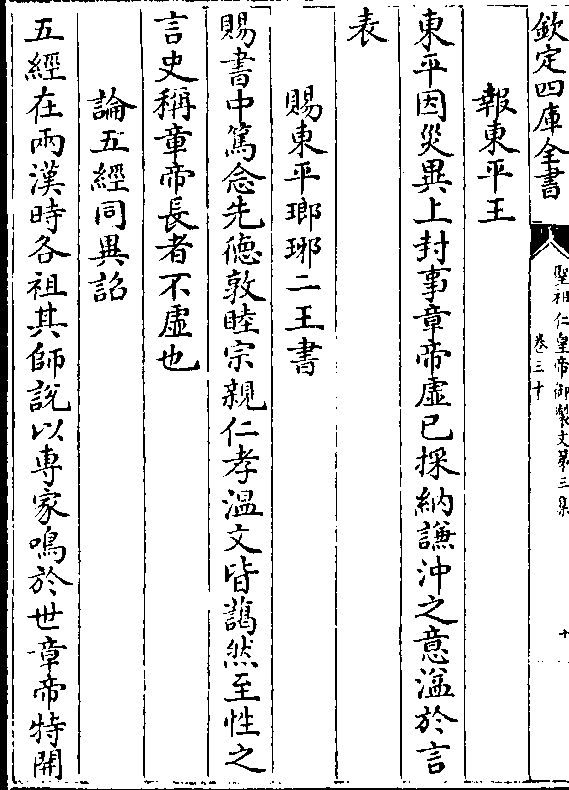 欽定四庫全書
聖祖仁皇帝御製文第三集
卷三十
十
報東平王
東平因災異上封事章帝虛已採納謙沖之意溢於言
表
賜東平瑯琊二王書
賜書中篤念先德敦睦宗親仁孝溫文皆藹然至性之
言史稱章帝長者不虛也
論五經同異詔
五經在兩漢時各祖其師說以專家鳴於世章帝特開